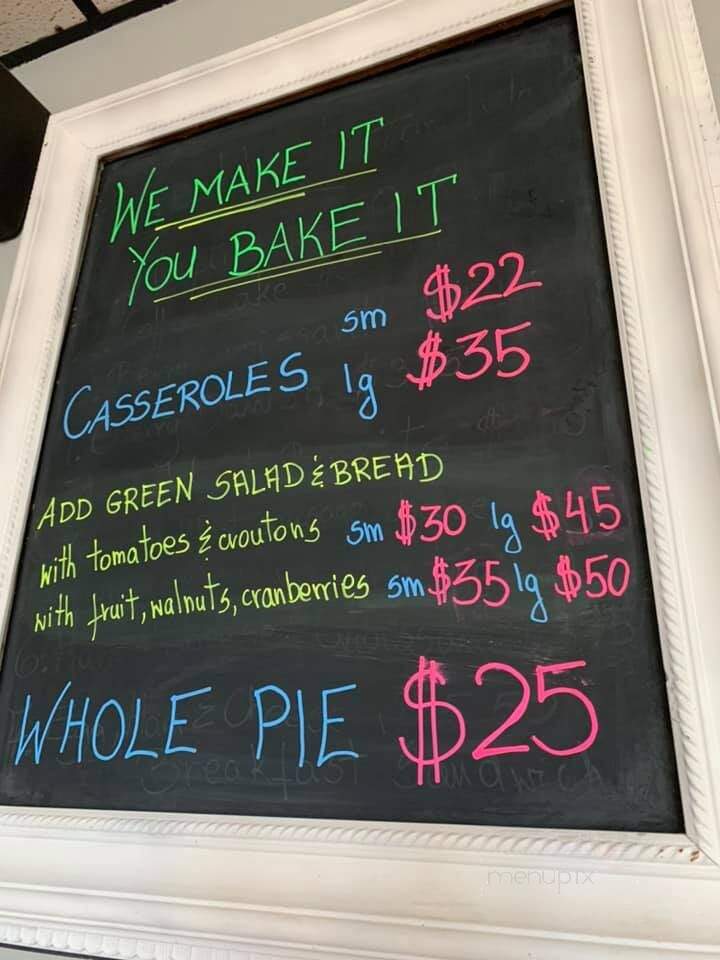 WE MAKE IT
YOU BAKE IT
sm $22
CASSEROLES lg $35
ADD GREEN SALAD & BREAD
with tomatoes & croutons sm $30 lg $45
with fruit, walnuts, cranberries sm $35 lg $50
WHOLE PIE $25
menupix